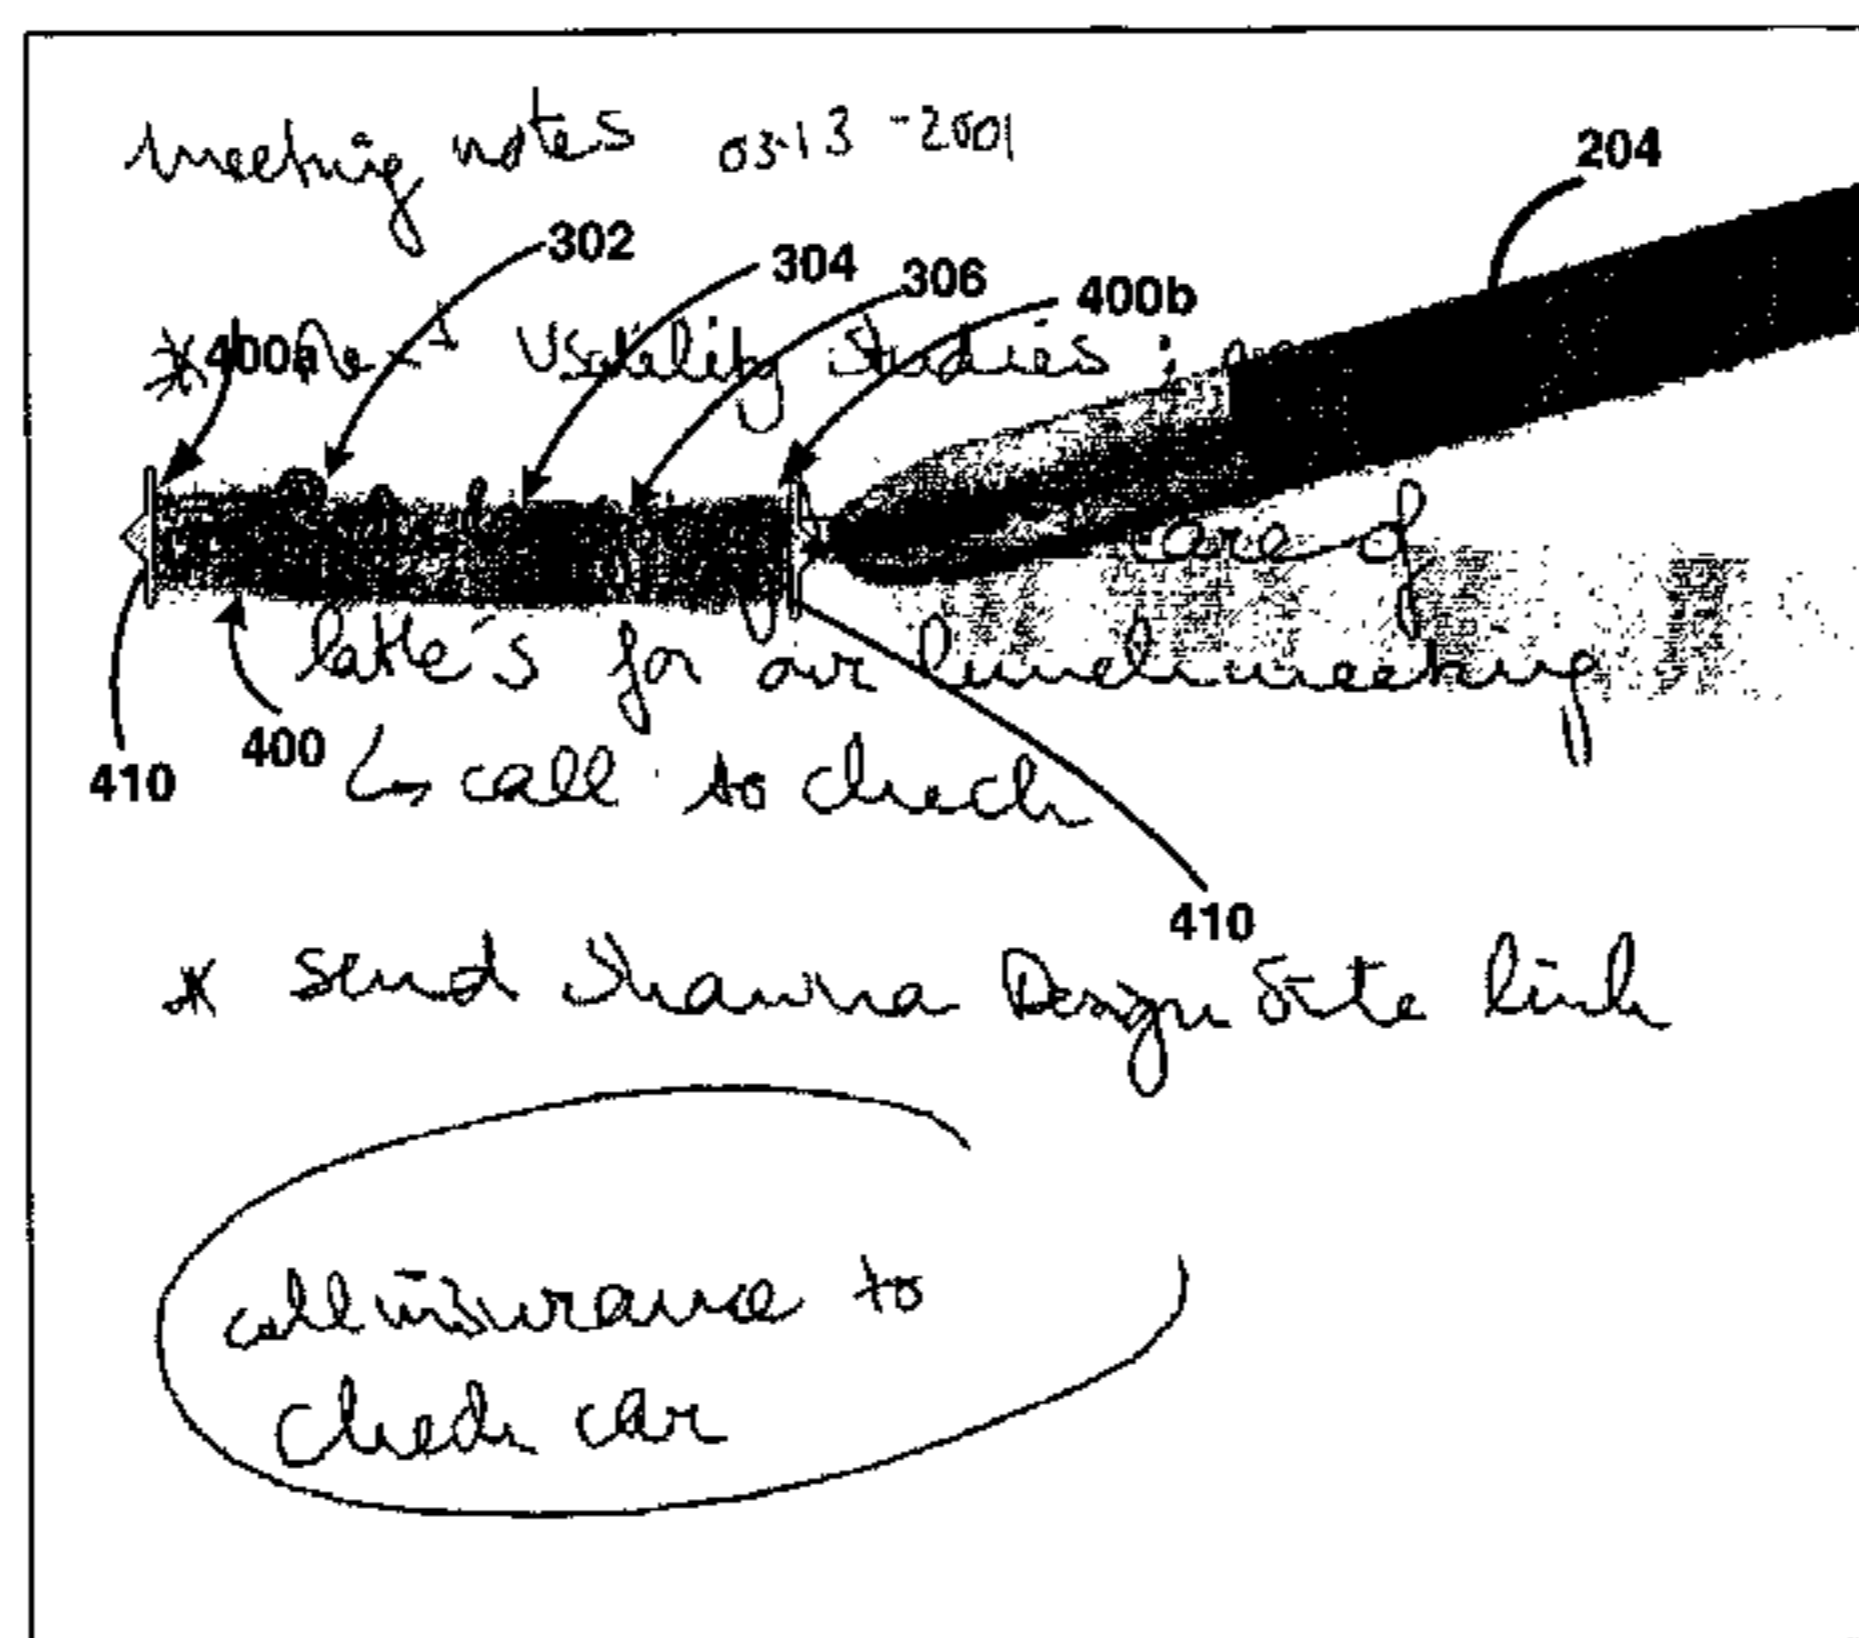 meeting notes 03-13-2001
204
302
304
306
400b
* 400a Usability Studies :
care of
latte's for our lunch meeting
400
410
↳ call to check
410
* Send Shanna Design Site link
call insurance to
check car